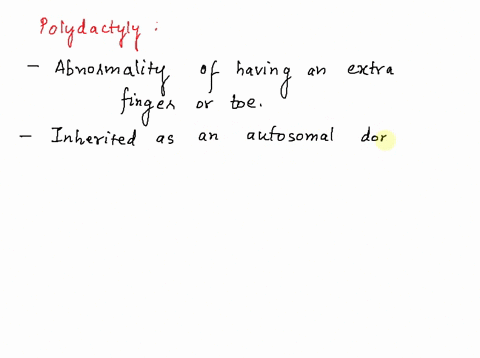 Polydactyly :
- Abnormality of having an extra
finger or toe.
- Inherited as an autosomal dor